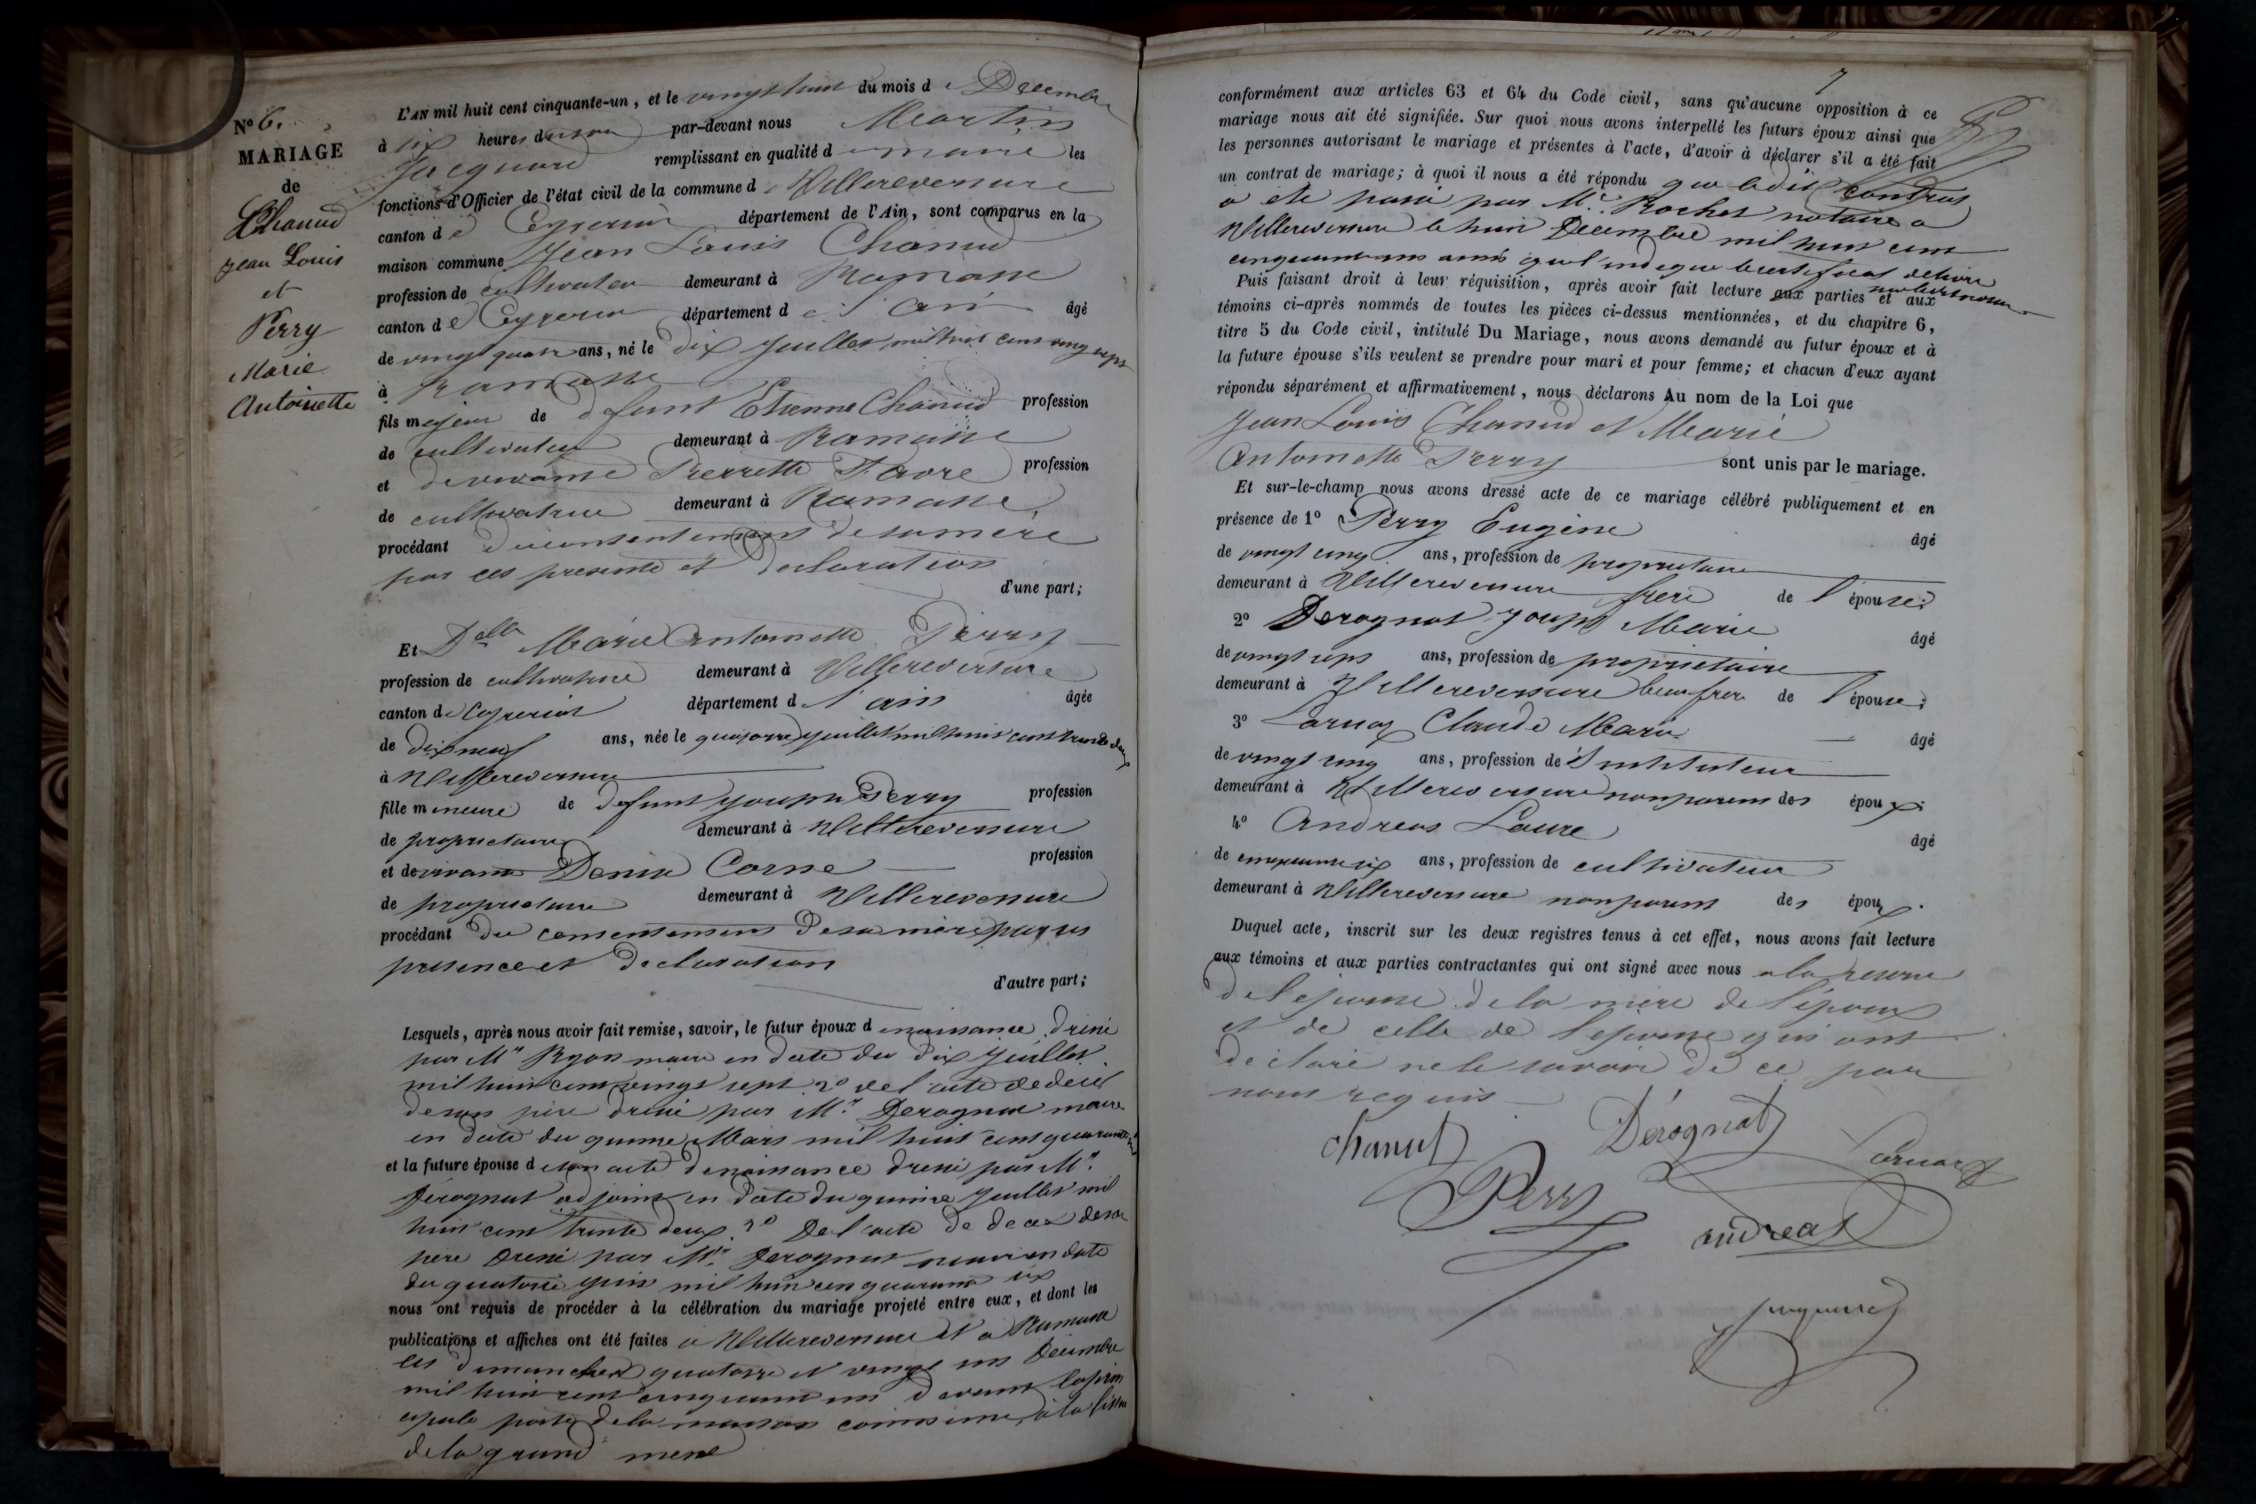 No 6.
MARIAGE
de
Chanud
Jean Louis
et
Perry
Marie
Antoinette
L'AN mil huit cent cinquante-un, et le vingt huit du mois de Décembre
à six heures du soir par-devant nous Martin
Jacquard remplissant en qualité de maire les
fonctions d'Officier de l'état civil de la commune de Villereversure
canton de Ceyzeriat département de l'Ain, sont comparus en la
maison commune Jean Louis Chanud
profession de cultivateur demeurant à Ramasse
canton de Ceyzeriat département de l'ain âgé
de vingt quatre ans, né le dix juillet mil huit cent vingt sept
à Ramasse
fils majeur de défunt Etienne Chanud profession
de cultivateur demeurant à Ramasse
et de vivante Pierrette Favre profession
de cultivatrice demeurant à Ramasse
procédant du consentement de sa mère
par ses presente et declaration
d'une part;
Et Delle Marie Antoinette Perry
profession de cultivatrice demeurant à Villereversure
canton de Ceyzeriat département de l'ain âgée
de dix neuf ans, née le quatorze juillet mil huit cent trente deux
à Villereversure
fille mineure de defunt Joseph Perry profession
de proprietaire demeurant à Villereversure
et de vivante Denise Corne profession
de proprietaire demeurant à Villereversure
procédant du consentement de sa mère par ses
presence et declaration
d'autre part;
Lesquels, après nous avoir fait remise, savoir, le futur époux de naissance dressé
par Mr Ryon maire en date du dix juillet
mil huit cent vingt sept 2o de l'acte de décès
de son père dressé par Mr Derognat maire
en date du quinze Mars mil huit cent quarante
et la future épouse de son acte de naissance dressé par Mr
Dérognat adjoint en date du quinze juillet mil
huit cent trente deux 2o De l'acte de deces de son
père dressé par Mr Derognat maire en date
du quatorze juin mil huit cent quarante six
nous ont requis de procéder à la célébration du mariage projeté entre eux, et dont les
publications et affiches ont été faites a Villereversure et a Ramasse
les dimanches quatorze et vingt un Décembre
mil huit cent cinquante un devant la prin
cipale porte de la maison commune, à la
de la grand messe
7
conformément aux articles 63 et 64 du Code civil, sans qu'aucune opposition à ce
mariage nous ait été signifiée. Sur quoi nous avons interpellé les futurs époux ainsi que
les personnes autorisant le mariage et présentes à l'acte, d'avoir à déclarer s'il a été fait
un contrat de mariage; à quoi il nous a été répondu que ledit contrat
a été passé par Me Rochet notaire a
Villereversure le huit Décembre mil huit cent
cinquante un ainsi que l'indique le certificat delivré
par le dit notaire
Puis faisant droit à leur réquisition, après avoir fait lecture aux parties et aux
témoins ci-après nommés de toutes les pièces ci-dessus mentionnées, et du chapitre 6,
titre 5 du Code civil, intitulé Du Mariage, nous avons demandé au futur époux et à
la future épouse s'ils veulent se prendre pour mari et pour femme; et chacun d'eux ayant
répondu séparément et affirmativement, nous déclarons Au nom de la Loi que
Jean Louis Chanud et Marie
Antoinette Perry sont unis par le mariage.
Et sur-le-champ nous avons dressé acte de ce mariage célébré publiquement et en
présence de 1o Perry Eugène âgé
de vingt cinq ans, profession de proprietaire
demeurant à Villereversure frère de l'épouse;
2o Derognat Joseph Marie âgé
de vingt sept ans, profession de proprietaire
demeurant à Villereversure beau frere de l'épouse;
3o Claude Marie âgé
de vingt cinq ans, profession de Instituteur
demeurant à Villereversure non parent des époux;
4o Andreas Laure âgé
de cinquante six ans, profession de cultivateur
demeurant à Villereversure non parent des époux.
Duquel acte, inscrit sur les deux registres tenus à cet effet, nous avons fait lecture
aux témoins et aux parties contractantes qui ont signé avec nous a la reserve
de l'epouse de la mère de l'époux
et de celle de l'epouse qui ont
déclaré ne le savoir de ce par
nous requis
Chanut
Dérognat
Perry
andreas
Jacquard